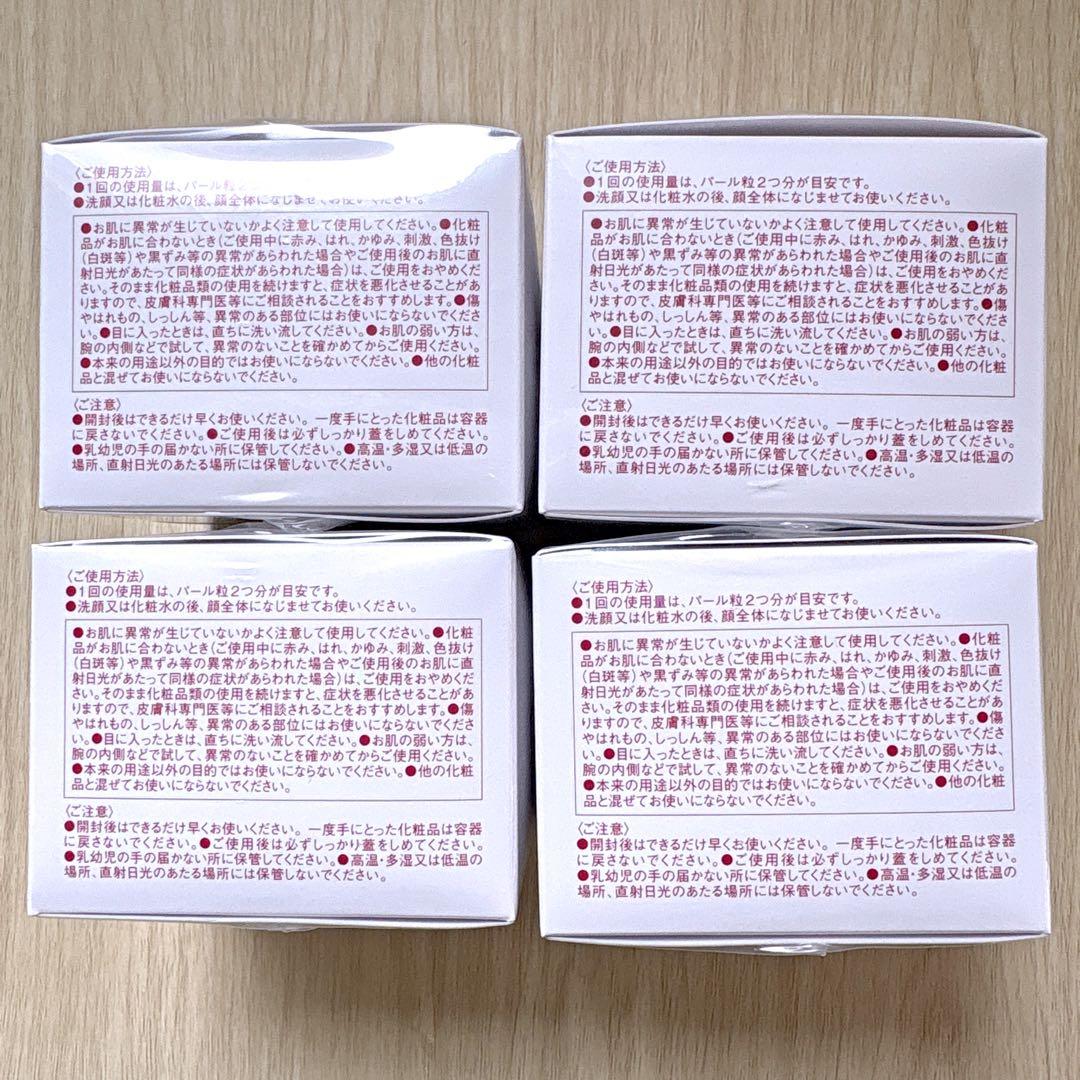 〈ご使用方法〉
●1回の使用量は、パール粒2つ分
●洗顔又は化粧水の後、顔全体になじませてお使いください。
●お肌に異常が生じていないかよく注意して使用してください。●化粧
品がお肌に合わないとき(ご使用中に赤み、はれ、かゆみ、刺激、色抜け
(白斑等)や黒ずみ等の異常があらわれた場合やご使用後のお肌に直
射日光があたって同様の症状があらわれた場合)は、ご使用をおやめくだ
さい。そのまま化粧品類の使用を続けますと、症状を悪化させることがあ
りますので、皮膚科専門医等にご相談されることをおすすめします。●傷
やはれもの、しっしん等、異常のある部位にはお使いにならないでくださ
い。●目に入ったときは、直ちに洗い流してください。●お肌の弱い方は、
腕の内側などで試して、異常のないことを確かめてからご使用ください。
●本来の用途以外の目的ではお使いにならないでください。●他の化粧
品と混ぜてお使いにならないでください。
〈ご注意〉
●開封後はできるだけ早くお使いください。一度手にとった化粧品は容器
に戻さないでください。●ご使用後は必ずしっかり蓋をしめてください。
●乳幼児の手の届かない所に保管してください。●高温・多湿又は低温の
場所、直射日光のあたる場所には保管しないでください。
〈ご使用方法〉
●1回の使用量は、パール粒2つ分が目安です。
●洗顔又は化粧水の後、顔全体になじませてお使いください。
●お肌に異常が生じていないかよく注意して使用してください。●化粧
品がお肌に合わないとき(ご使用中に赤み、はれ、かゆみ、刺激、色抜け
(白斑等)や黒ずみ等の異常があらわれた場合やご使用後のお肌に直
射日光があたって同様の症状があらわれた場合)は、ご使用をおやめくだ
さい。そのまま化粧品類の使用を続けますと、症状を悪化させることがあ
りますので、皮膚科専門医等にご相談されることをおすすめします。●傷
やはれもの、しっしん等、異常のある部位にはお使いにならないでくださ
い。●目に入ったときは、直ちに洗い流してください。●お肌の弱い方は、
腕の内側などで試して、異常のないことを確かめてからご使用ください。
●本来の用途以外の目的ではお使いにならないでください。●他の化粧
品と混ぜてお使いにならないでください。
〈ご注意〉
●開封後はできるだけ早くお使いください。一度手にとった化粧品は容器
に戻さないでください。●ご使用後は必ずしっかり蓋をしめてください。
●乳幼児の手の届かない所に保管してください。●高温・多湿又は低温の
場所、直射日光のあたる場所には保管しないでください。
〈ご使用方法〉
●1回の使用量は、パール粒2つ分が目安です。
●洗顔又は化粧水の後、顔全体になじませてお使いください。
●お肌に異常が生じていないかよく注意して使用してください。●化粧
品がお肌に合わないとき(ご使用中に赤み、はれ、かゆみ、刺激、色抜け
(白斑等)や黒ずみ等の異常があらわれた場合やご使用後のお肌に直
射日光があたって同様の症状があらわれた場合)は、ご使用をおやめくだ
さい。そのまま化粧品類の使用を続けますと、症状を悪化させることがあ
りますので、皮膚科専門医等にご相談されることをおすすめします。●傷
やはれもの、しっしん等、異常のある部位にはお使いにならないでくださ
い。●目に入ったときは、直ちに洗い流してください。●お肌の弱い方は、
腕の内側などで試して、異常のないことを確かめてからご使用ください。
●本来の用途以外の目的ではお使いにならないでください。●他の化粧
品と混ぜてお使いにならないでください。
〈ご注意〉
●開封後はできるだけ早くお使いください。一度手にとった化粧品は容器
に戻さないでください。●ご使用後は必ずしっかり蓋をしめてください。
●乳幼児の手の届かない所に保管してください。●高温・多湿又は低温の
場所、直射日光のあたる場所には保管しないでください。
〈ご使用方法〉
●1回の使用量は、パール粒2つ分が目安です。
●洗顔又は化粧水の後、顔全体になじませてお使いください。
●お肌に異常が生じていないかよく注意して使用してください。●化粧
品がお肌に合わないとき(ご使用中に赤み、はれ、かゆみ、刺激、色抜け
(白斑等)や黒ずみ等の異常があらわれた場合やご使用後のお肌に直
射日光があたって同様の症状があらわれた場合)は、ご使用をおやめくだ
さい。そのまま化粧品類の使用を続けますと、症状を悪化させることがあ
りますので、皮膚科専門医等にご相談されることをおすすめします。●傷
やはれもの、しっしん等、異常のある部位にはお使いにならないでくださ
い。●目に入ったときは、直ちに洗い流してください。●お肌の弱い方は、
腕の内側などで試して、異常のないことを確かめてからご使用ください。
●本来の用途以外の目的ではお使いにならないでください。●他の化粧
品と混ぜてお使いにならないでください。
〈ご注意〉
●開封後はできるだけ早くお使いください。一度手にとった化粧品は容器
に戻さないでください。●ご使用後は必ずしっかり蓋をしめてください。
●乳幼児の手の届かない所に保管してください。●高温・多湿又は低温の
場所、直射日光のあたる場所には保管しないでください。